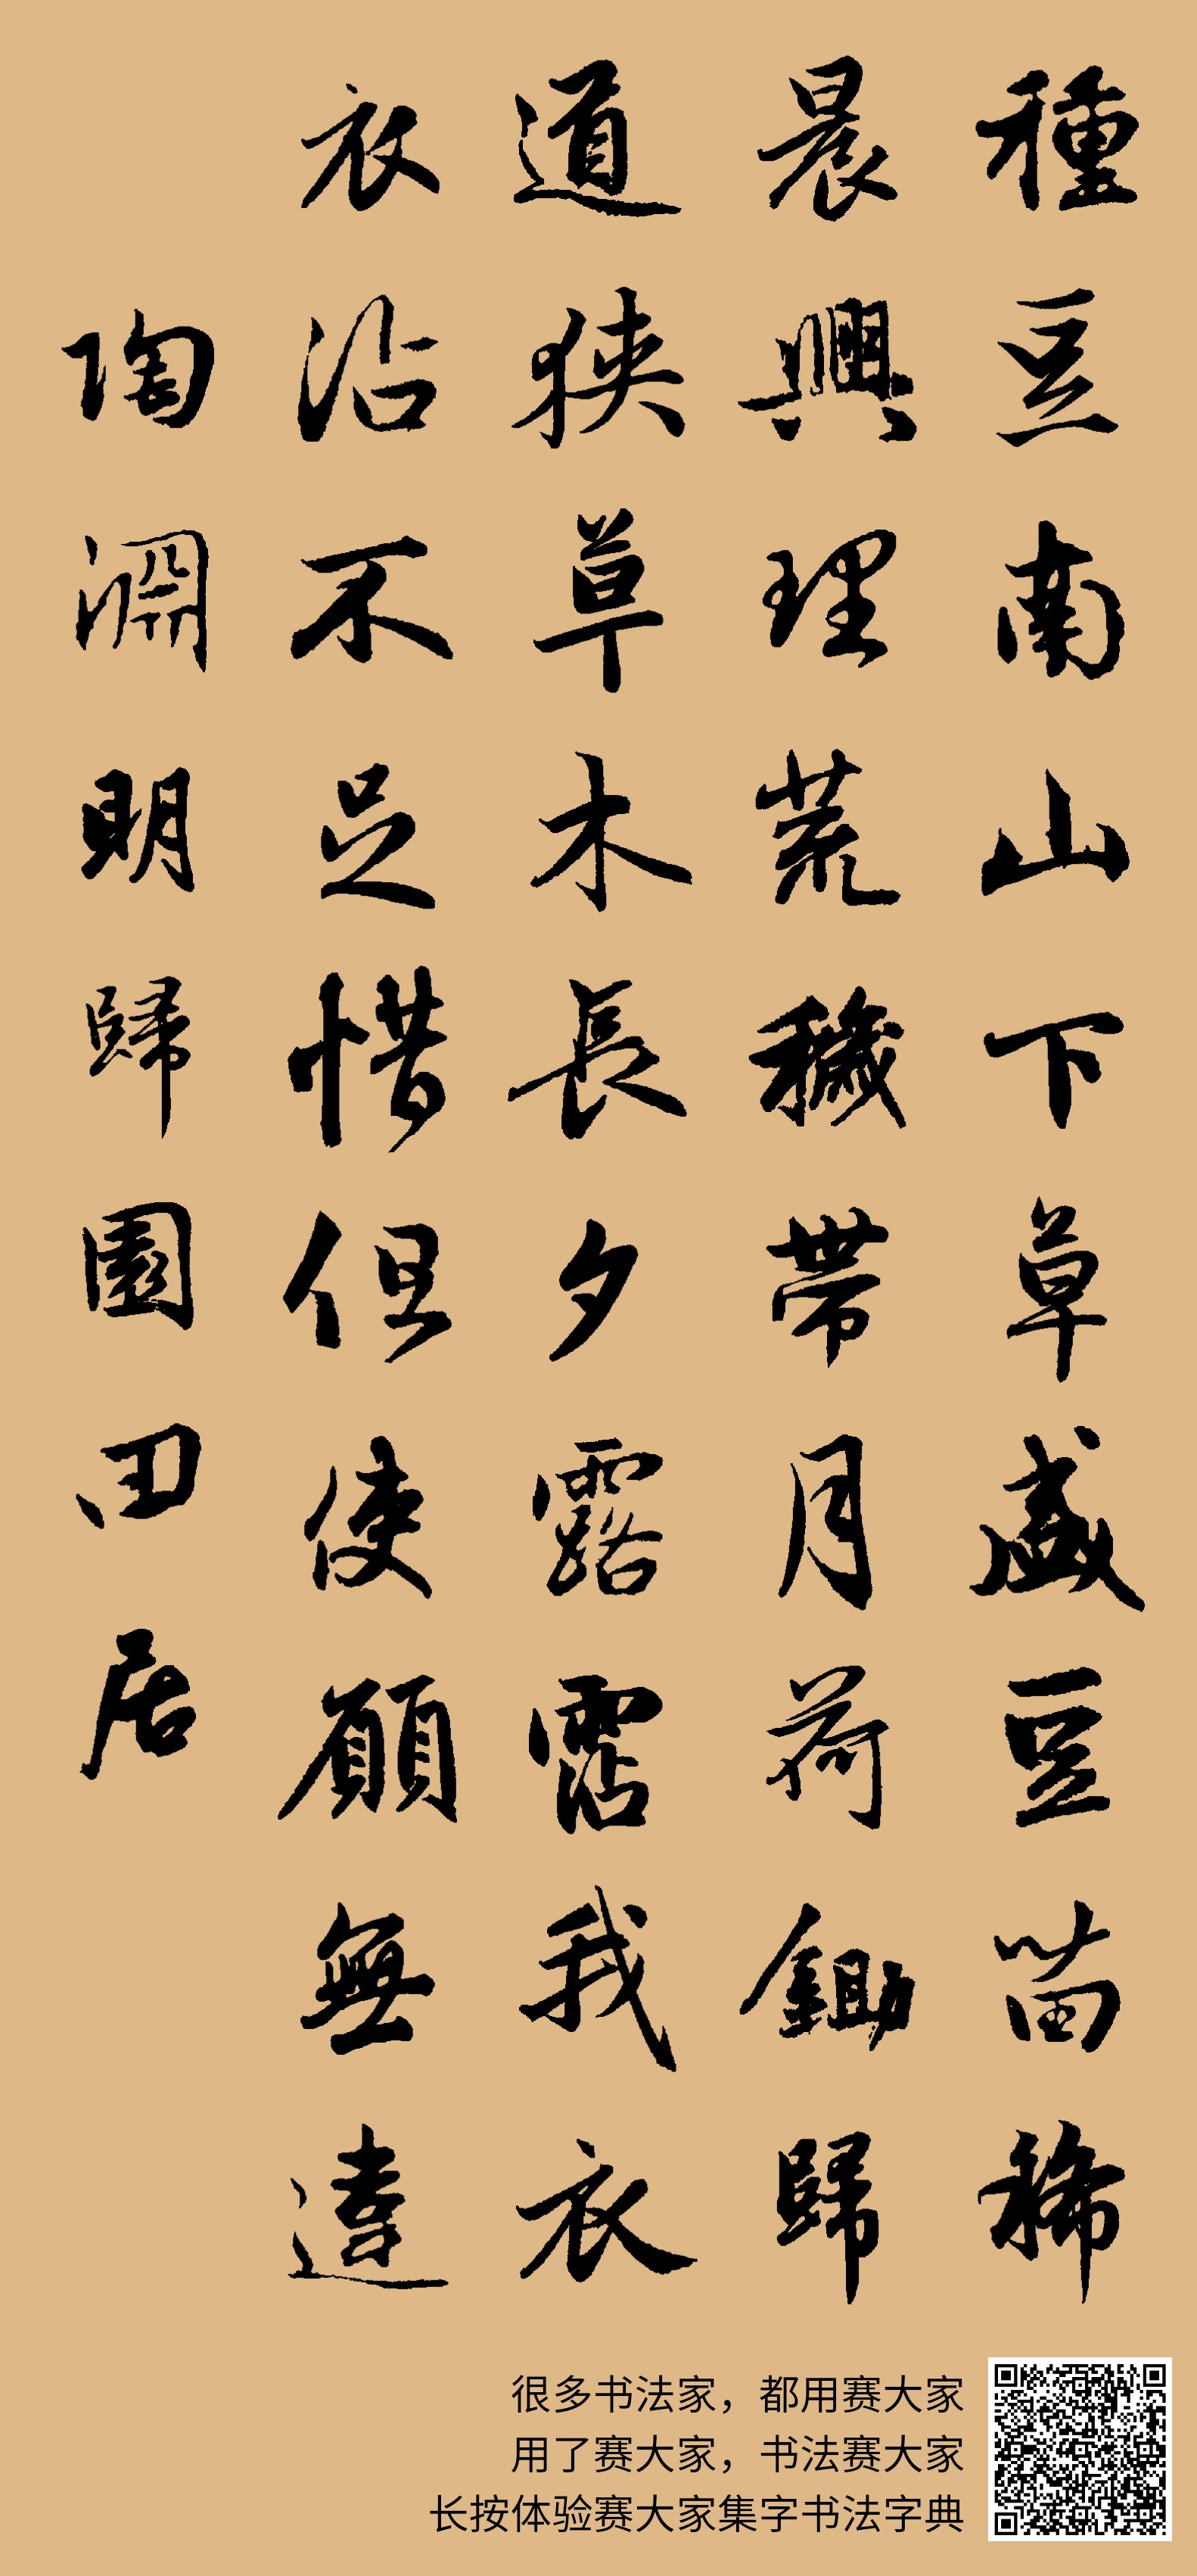 種豆南山下草盛豆苗稀
晨興理荒穢帶月荷鋤歸
道狹草木長夕露霑我衣
衣沾不足惜但使願無違
陶淵明歸園田居
很多书法家，都用赛大家
用了赛大家，书法赛大家
长按体验赛大家集字书法字典